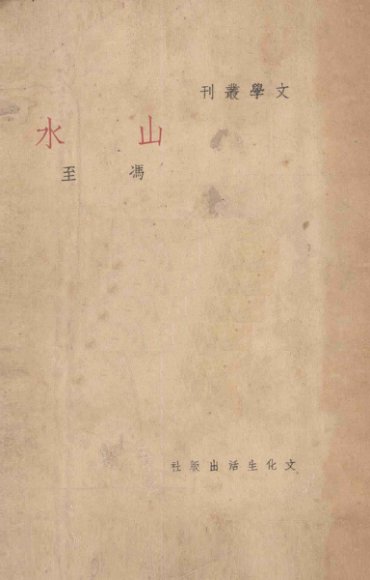 文學叢刊
山水
馮至
文化生活出版社